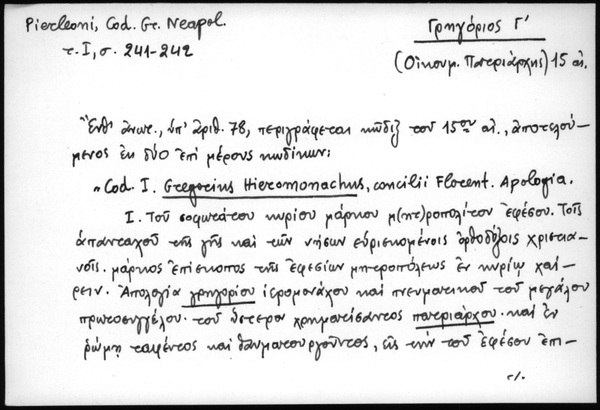 Pierleoni, Cod. Gr. Neapol.
τ. I, σ. 241-242
Γρηγόριος Γ'
(Οἰκουμ. Πατριάρχης) 15 αἰ.
Ἔνθ' ἀνωτ., ὑπ' ἀριθ. 78, περιγράφεται κῶδιξ τοῦ 15ου αἰ., ἀποτελού-
μενος ἐκ δύο ἐπὶ μέρους κωδίκων:
"Cod. I. Gregorius Hieromonachus, concilii Florent. Apologia.
I. Τοῦ σοφωτάτου κυρίου μάρκου μ(ητ)ροπολίτου ἐφέσου. Τοῖς
ἁπανταχοῦ τῆς γῆς καὶ τῶν νήσων εὑρισκομένοις ὀρθοδόξοις χριστια-
νοῖς. μάρκος ἐπίσκοπος τῆς ἐφεσίων μητροπόλεως ἐν κυρίῳ χαί-
ρειν. Ἀπολογία γρηγορίου ἱερομονάχου καὶ πνευματικοῦ τοῦ μεγάλου
πρωτοσυγγέλου. τοῦ ὕστερον χρηματίσαντος πατριάρχου. καὶ ἐν
ῥώμῃ ταφέντος καὶ θαυματουργοῦντος, εἰς τὴν τοῦ ἐφέσου ἐπι-
./.